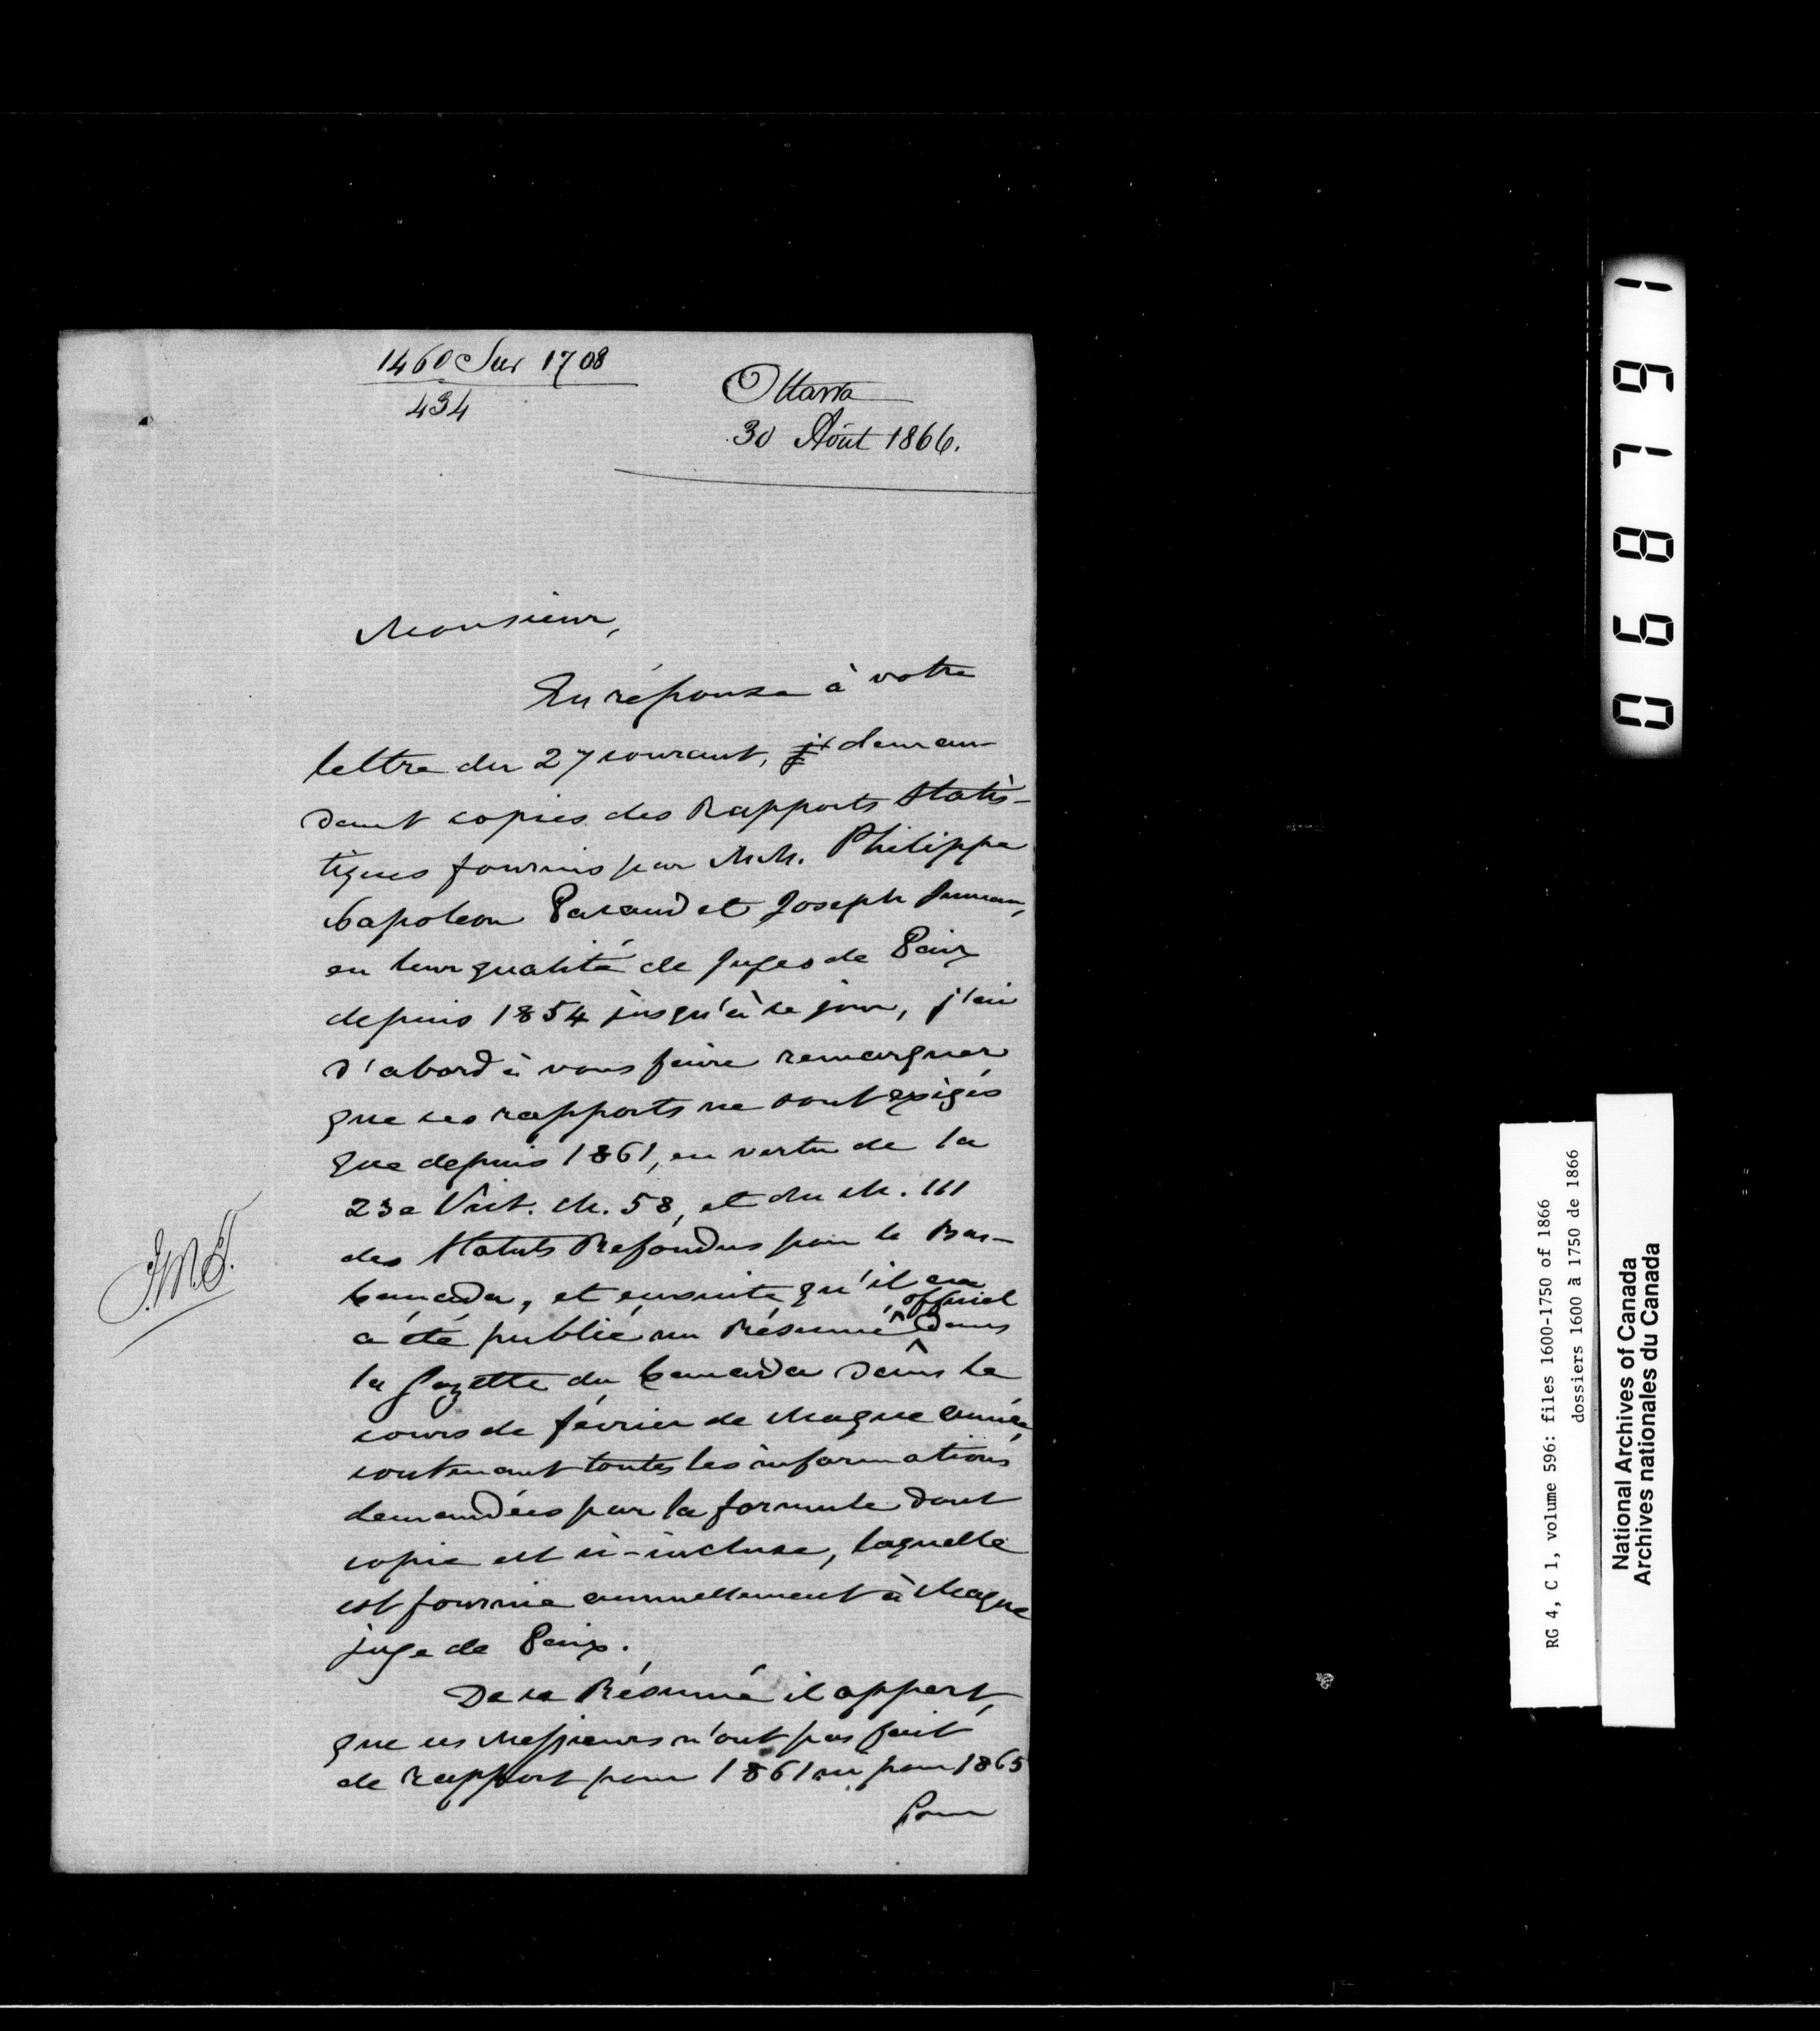 1460 Sur 1708
434
Ottawa
30 Août 1866.
Monsieur,
En réponse à votre
lettre du 27 courant, deman
dant copies des Rapports Statis-
tiques fournis par MM. Philippe
Napoleon Pacaud et Joseph
en leur qualité de Juges de Paix
depuis 1854 jusqu'à ce jour, j'ai
d'abord à vous faire remarquer
que ces rapports ne sont exigés
que depuis 1861, en vertu de la
23e Vict. ch. 58, et du ch. 111
des Statuts Refondus pour le Bas-
Canada, et ensuite qu'il en
a été publié un Résumé officiel dans
la Gazette du Canada dans le
cours de février de chaque année,
contenant toutes les informations
demandées par la formule dont
copie est ci-incluse, laquelle
est fournie annuellement à chaque
juge de Paix.
De ce Résumé il appert,
que ces Messieurs n'ont pas fait
de rapport pour 1861 ni pour 1865
Pour
068791
RG 4, C 1, volume 596: files 1600-1750 of 1866
dossiers 1600 à 1750 de 1866
National Archives of Canada
Archives nationales du Canada